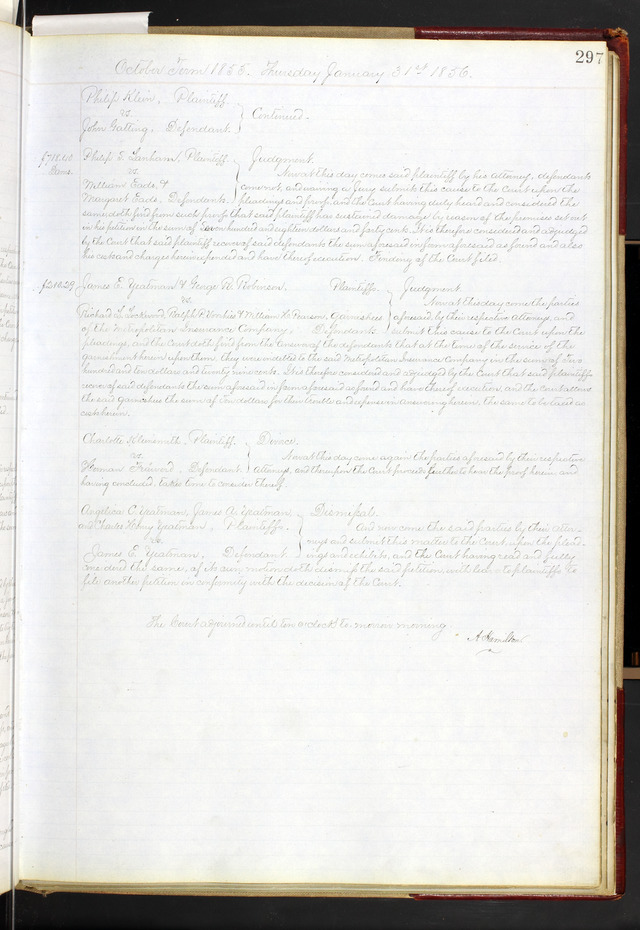 297
October Term 1855. Thursday January 31st 1856.
Philip Klein, Plaintiff.
vs.
John Gatting, Defendant.
Continued.
$718.40
Dams.
Philip E. Lanham, Plaintiff.
vs.
William Eads, &
Margaret Eads, Defendants.
Judgment.
Now at this day comes said plaintiff by his Attorney, defendants
come not, and waiving a Jury submits this cause to the Court upon the
pleadings and proof, and the Court having duly heard and considered the
same doth find from such proof that said plaintiff has sustained damage by reason of the premises set out
in his petition in the sum of Seven hundred and eighteen dollars and forty cents. It is therefore considered and adjudged
by the Court that said plaintiff recover of said defendants the sum aforesaid in form aforesaid as found and also
his costs and charges herein expended and have thereof execution. Finding of the Court filed.
$210.29
James E. Yeatman & George R. Robinson. Plaintiffs.
vs.
Richard L. Lockwood, Ralph P. & William H. Pearson, Garnishees
of the Metropolitan Insurance Company, Defendants.
Judgment.
Now at this day come the parties
aforesaid, by their respective Attorneys, and
submit this cause to the Court upon the
pleadings, and the Court doth find from the answer of the defendants that at the time of the service of the
garnishment herein upon them, they were indebted to the said Metropolitan Insurance Company in the sum of Two
hundred and ten dollars and twenty nine cents. It is therefore considered and adjudged by the Court that said plaintiffs
recover of said defendants the sum aforesaid in form aforesaid as found and have thereof execution, and the Court allows
the said garnishees the sum of Ten dollars for their trouble and expenses in answering herein, the same to be taxed as
costs herein.
Charlotte Kleinsmith, Plaintiff.
vs.
Herman, Defendant.
Divorce.
Now at this day come again the parties aforesaid by their respective
Attorneys, and thereupon the Court proceeds further to hear the proof herein and
having concluded, takes time to consider thereof.
Angelica C. Yeatman, James A. Yeatman
and Charles Yeatman, Plaintiffs.
vs.
James E. Yeatman, Defendant.
Dismissal.
And now come the said parties by their Attor-
neys and submit this matter to the Court, upon the plead-
ings and exhibits, and the Court having read and fully
considered the same, of its own motion doth dismiss the said petition with leave to plaintiffs to
file another petition in conformity with the decision of the Court.
The Court adjourned until ten o'clock to-morrow morning.
A. Hamilton